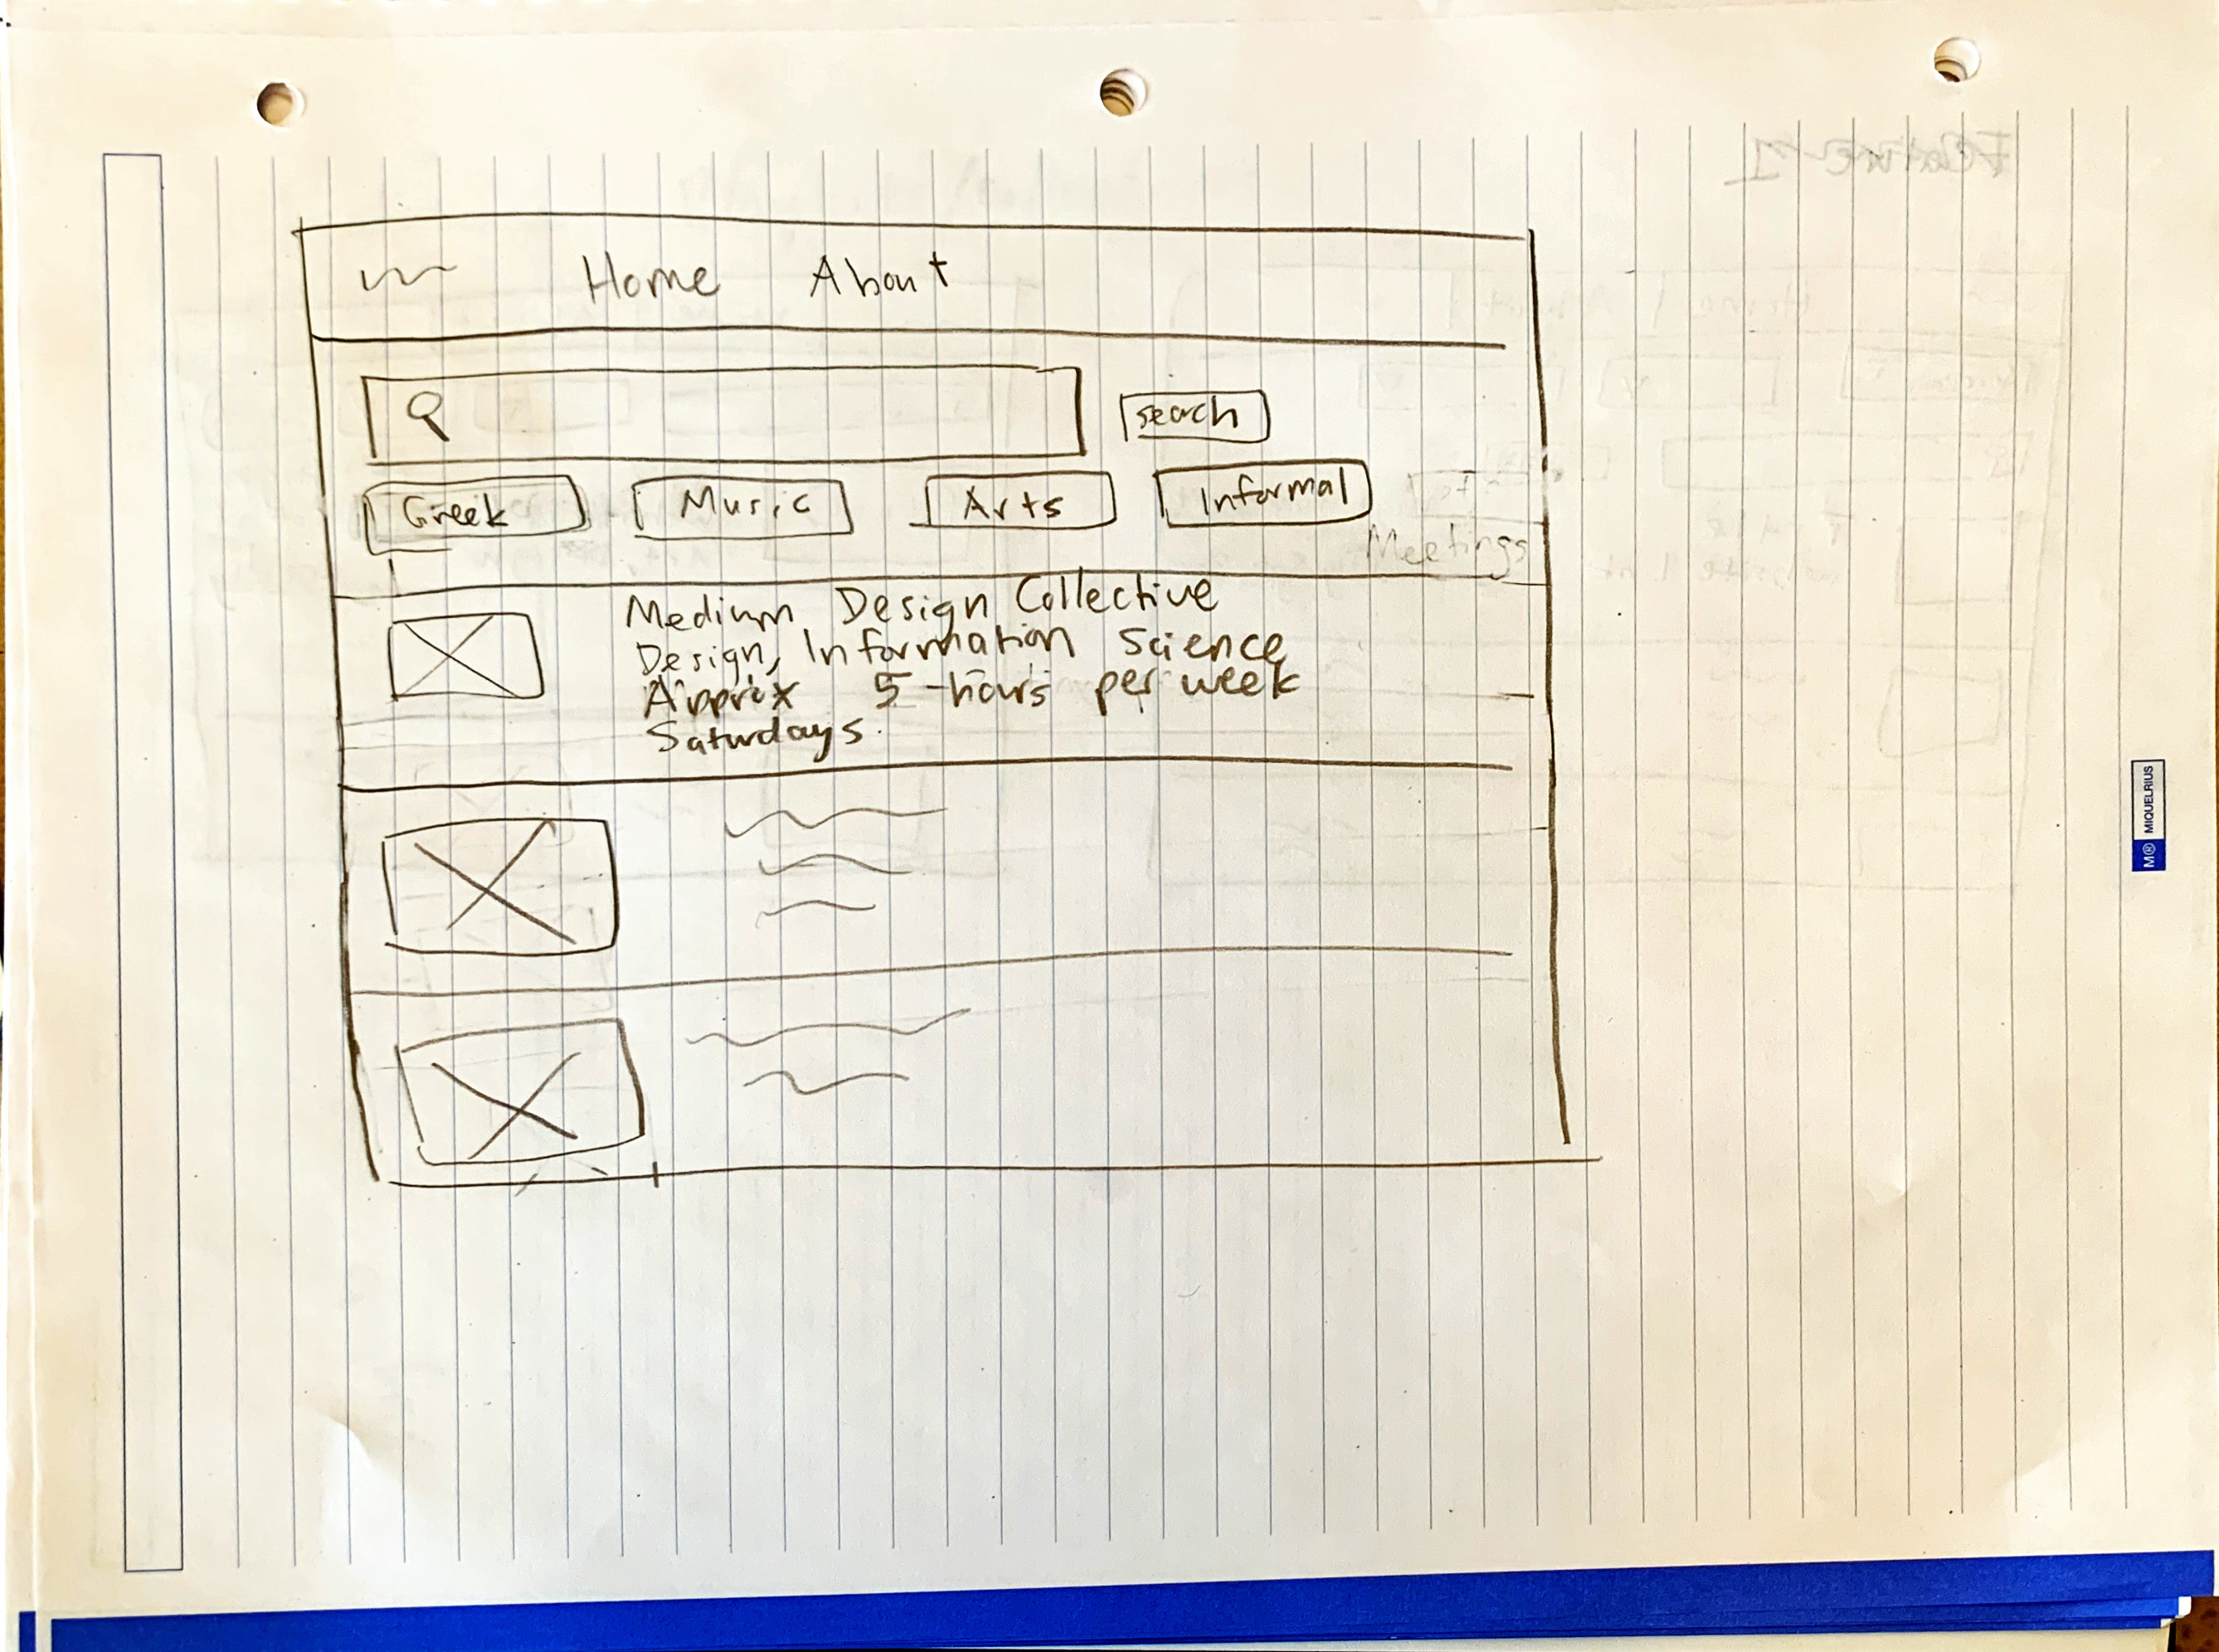 Feature 1
Home About
search
Greek Music Arts Informal
Meetings
Medium Design Collective
Design, Information Science
Approx 5 hours per week
Saturdays.
M® MIQUELRIUS